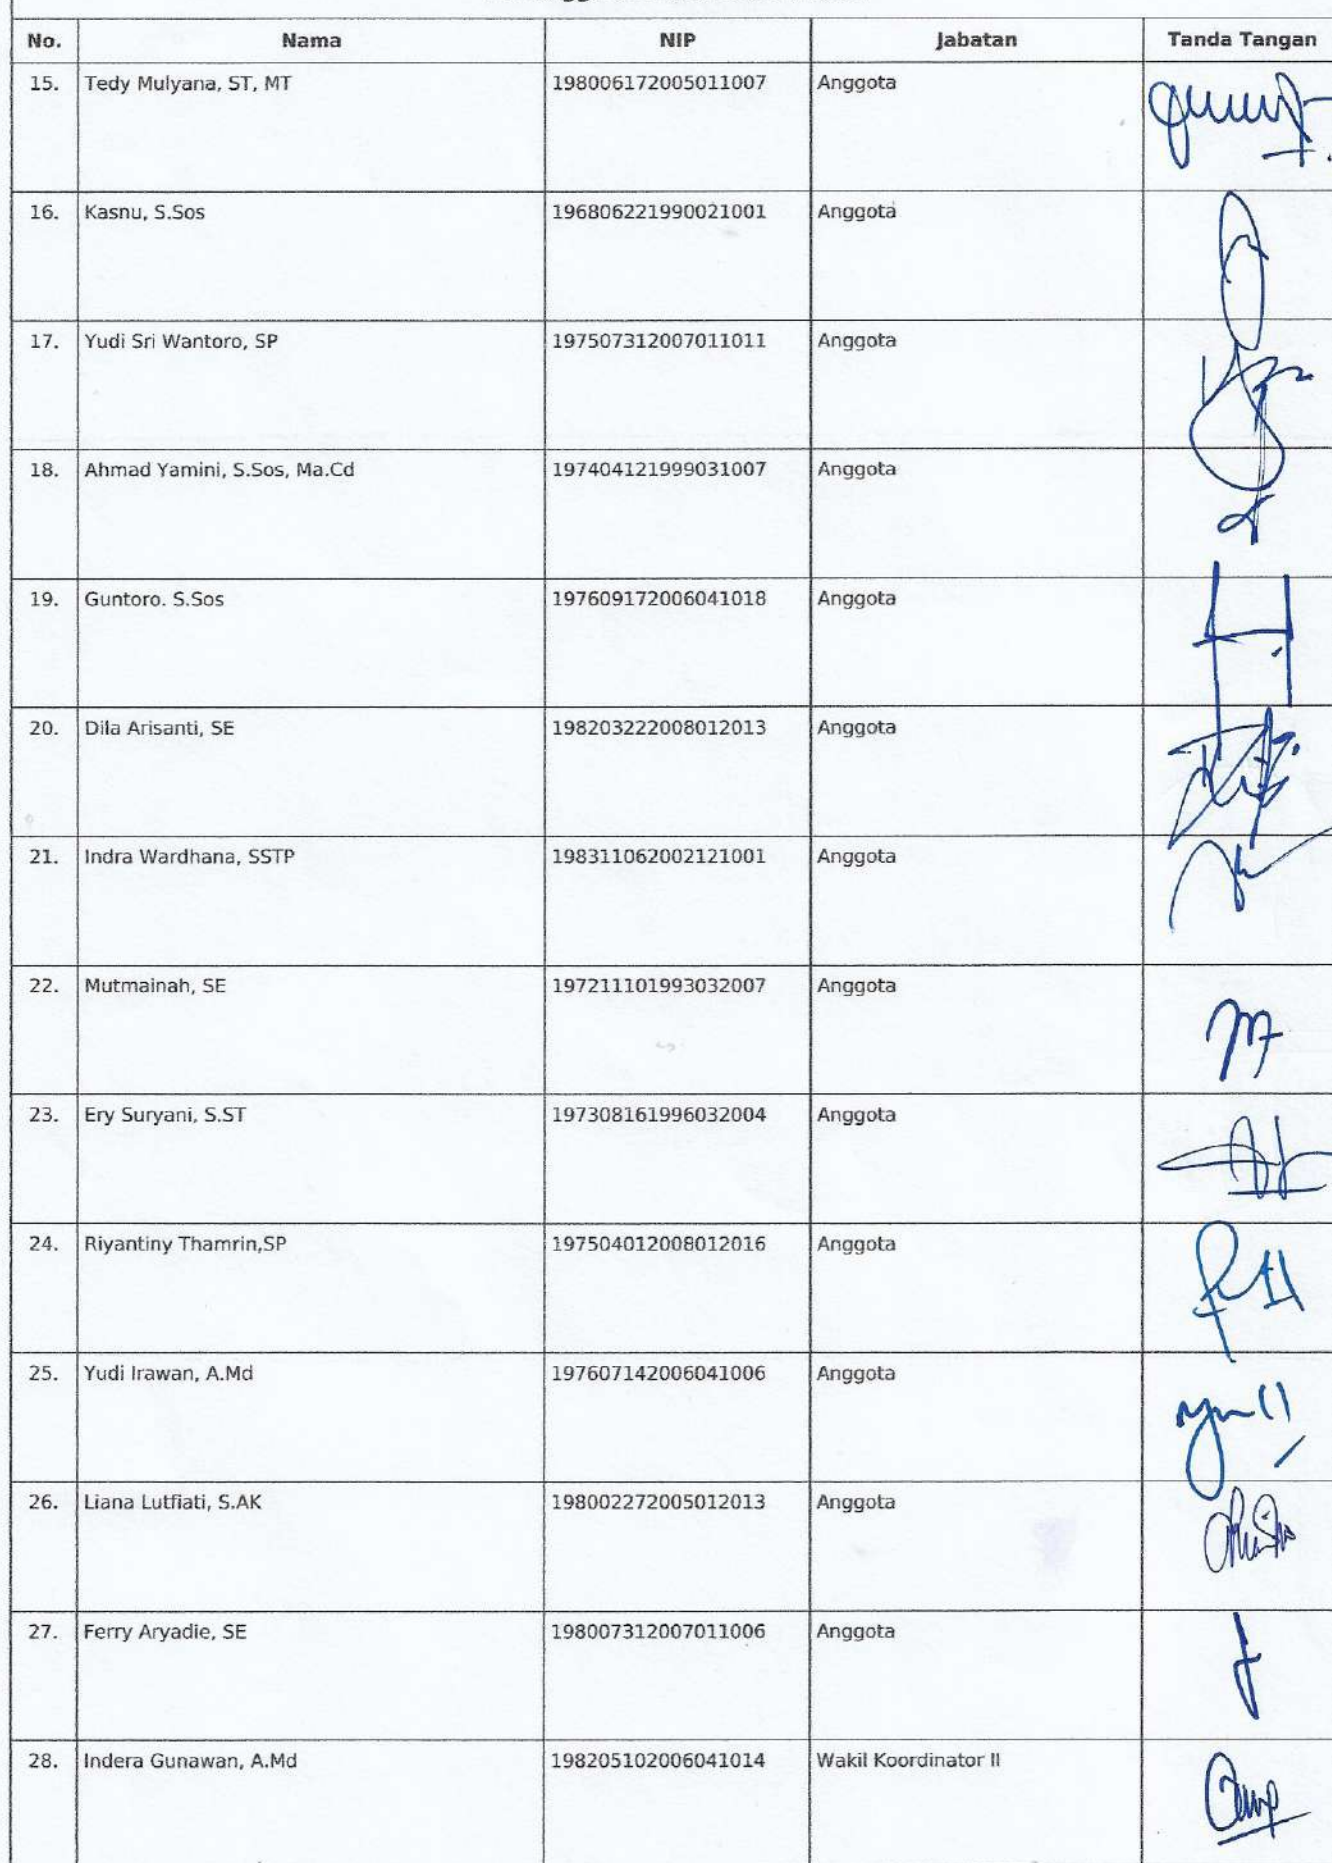 No. Nama NIP Jabatan Tanda Tangan
15. Tedy Mulyana, ST, MT 198006172005011007 Anggota
16. Kasnu, S.Sos 196806221990021001 Anggota
17. Yudi Sri Wantoro, SP 197507312007011011 Anggota
18. Ahmad Yamini, S.Sos, Ma.Cd 197404121999031007 Anggota
19. Guntoro. S.Sos 197609172006041018 Anggota
20. Dila Arisanti, SE 198203222008012013 Anggota
21. Indra Wardhana, SSTP 198311062002121001 Anggota
22. Mutmainah, SE 197211101993032007 Anggota
23. Ery Suryani, S.ST 197308161996032004 Anggota
24. Riyantiny Thamrin,SP 197504012008012016 Anggota
25. Yudi Irawan, A.Md 197607142006041006 Anggota
26. Liana Lutfiati, S.AK 198002272005012013 Anggota
27. Ferry Aryadie, SE 198007312007011006 Anggota
28. Indera Gunawan, A.Md 198205102006041014 Wakil Koordinator II